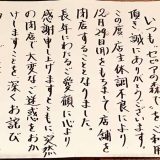 いつも、セピアの森をご利用
頂きありがとうございます。
この度、店主体調不良により
12月29日をもちまして店舗を
閉店することとなりました。
長年にわたるご愛顧に心より
感謝申し上げますとともに突然
の閉店で大変なご迷惑をおか
けしますことを深くお詫び